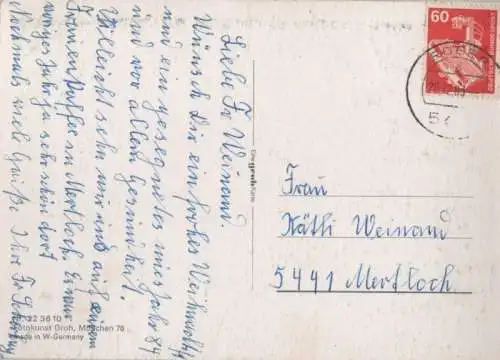 Liebe Fr Weinand.
Wünsch Dir ein frohes Weihnachts
und ein gesegnetes neues Jahr 84
und vor allem Gesundheit.
Vielleicht sehn wir uns auf einem
in Mertloch. Es war
voriges Jahr ja sehr schön dort
Nochmals viele Grüße Ihr Fr
60
Frau
Käthi Weinand
5441 Mertloch
22 36 10
Fotokunst Groh, München 70
Made in W-Germany